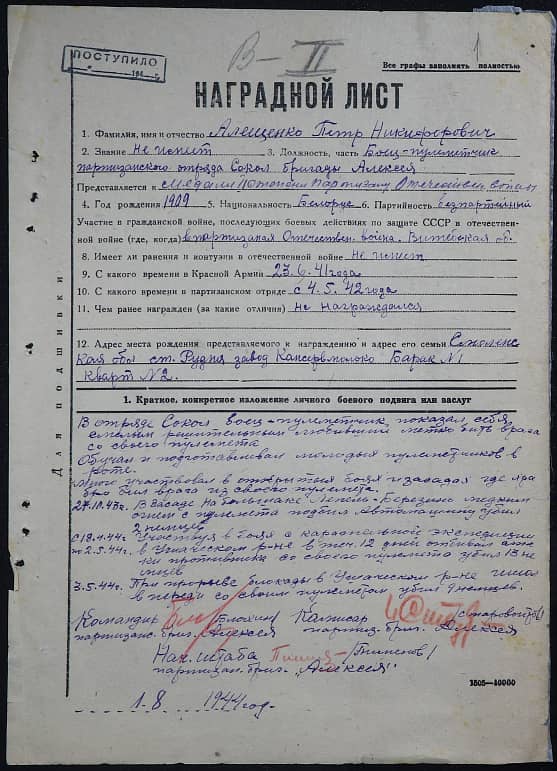 ПОСТУПИЛО
194 г.
В-II
1
Все графы заполнять полностью
НАГРАДНОЙ ЛИСТ
1. Фамилия, имя и отчество Алещенко Петр Никифорович
2. Звание Не имеет 3. Должность, часть Боец-пулеметчик
партизанского отряда Сокол бригады Алексея
Представляется к Медали Партизану Отечествен. войны
4. Год рождения 1909 5. Национальность Белорус 6. Партийность безпартийный
Участие в гражданской войне, последующих боевых действиях по защите СССР в отечествен-
ной войне (где, когда) в партизаная Отечествен. война. Витебская об.
8. Имеет ли ранения и контузии в отечественной войне не имеет
9. С какого времени в Красной Армии 23.6.41 года
10. С какого времени в партизанском отряде с 4.5.42 года
11. Чем ранее награжден (за какие отличия) не награждался
12. Адрес места рождения представляемого к награждению и адрес его семьи Смоленс
кая обл ст. Рудня завод Консервмолоко Барак N1
кварт N2.
Для подшивки
1. Краткое, конкретное изложение личного боевого подвига или заслуг
В отряде Сокол боец-пулеметчик показал себя
смелым решительным метко бить врага
со своего пулемета
Обучал и подготавливал молодых пулеметчиков в
роте.
Много участвовал в открытых боях и засадах где хра
бро бил врага из своего пулемета.
27.10.43г. В засаде на Лепель-Березино метким
огнем с пулемета подбил автомашину убил
2 немцев
с 18.4.44г. Участвуя в боях с карательной экспедицией
по 2.5.44г. в Ушачском р-не в теч 12 дней отбивал ата-
ки противника со своего пулемета убил 13 не
мцев
3.5.44г. При прорыве блокады в Ушачском р-не шел
в переди со своим пулеметом убил немцев.
Командир /Блохин/ Комисар
партизанс. бриг. Алексея партиз. бриг. Алексея
Нач. штаба /Пименов/
партизан. бриг. "Алексея"
1505—10000
1.8 1944 год